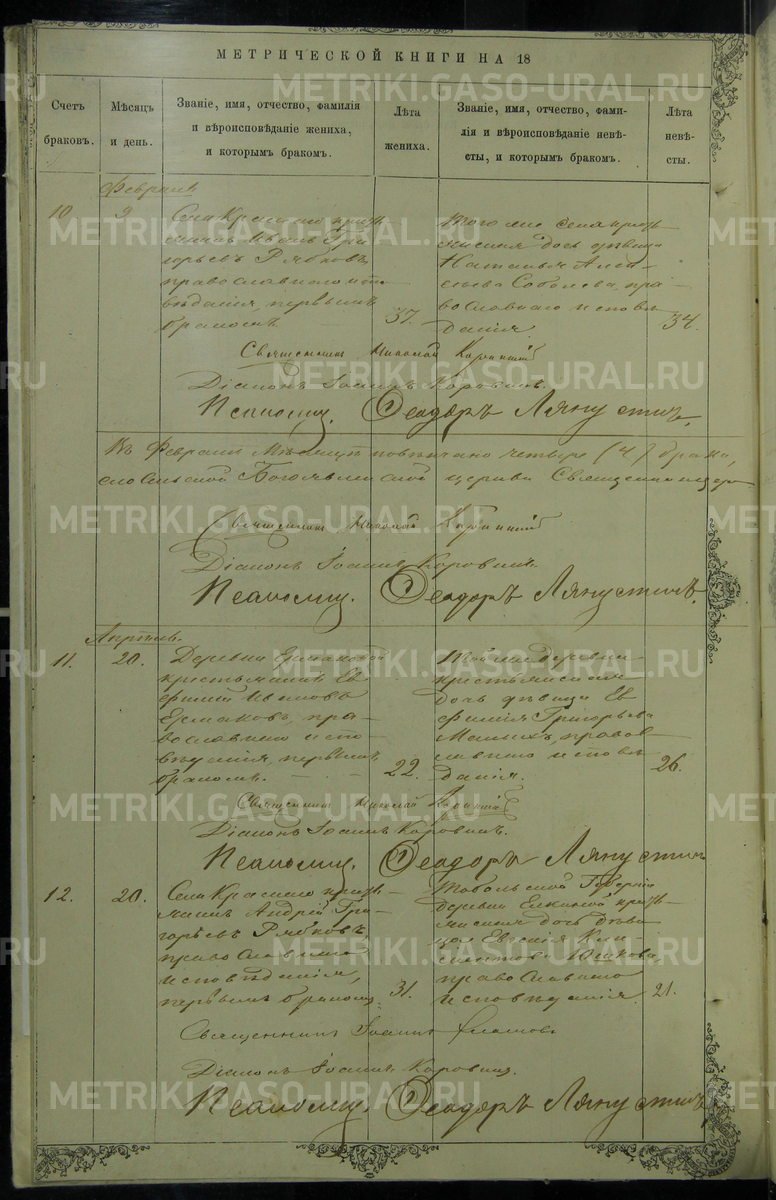 МЕТРИЧЕСКОЙ КНИГИ НА 18
Счетъ браковъ.
Мѣсяцъ и день.
Званіе, имя, отчество, фамилія
и вѣроисповѣданіе жениха,
и которымъ бракомъ.
Лѣта жениха.
Званіе, имя, отчество, фами-
лія и вѣроисповѣданіе невѣ-
сты, и которымъ бракомъ.
Лѣта невѣ-
сты.
Февраля
10.
9
Села Краснаго
Иванъ Гри
горьевъ Рябковъ
православнаго испо
вѣданія, первымъ
бракомъ
37.
Того же села
дочь дѣвица
Наталья Алек
сѣева Соболева, пра-
вославнаго исповѣ
данія
34.
Священникъ Николай
Діаконъ Іоаннъ Коровинъ.
Псаломщ. Ѳеодоръ Ляпустинъ.
Въ Февралѣ Мѣсяцѣ повѣнчано четыре (4) брака,
Богоявленской церкви
Священникъ Николай
Діаконъ Іоаннъ Коровинъ.
Псаломщ. Ѳеодоръ Ляпустинъ.
Апрѣль.
11.
20.
Деревни Ермаковой
крестьянинъ Ев
фимій Ивановъ
Ермаковъ, пра-
вославнаго испо
вѣданія, первымъ
бракомъ.
22.
Той же деревни
крестьянская
дочь дѣвица Ев
фимія Григорьева
Малыхъ, правос
лавнаго исповѣ
данія.
26.
Священникъ Николай
Діаконъ Іоаннъ Коровинъ.
Псаломщ. Ѳеодоръ Ляпустинъ
12.
20.
Села Краснаго
Андрей Гри
горьевъ Рябковъ,
православнаго
исповѣданія,
первымъ бракомъ
31.
Тобольской Губерніи
деревни Елкиной
дочь дѣви
ца Евгенія
Юшкова,
православнаго
исповѣданія.
21.
Священникъ Іоаннъ
Діаконъ Іоаннъ Коровинъ.
Псаломщ. Ѳеодоръ Ляпустинъ
METRIKI.GASO-URAL.RU